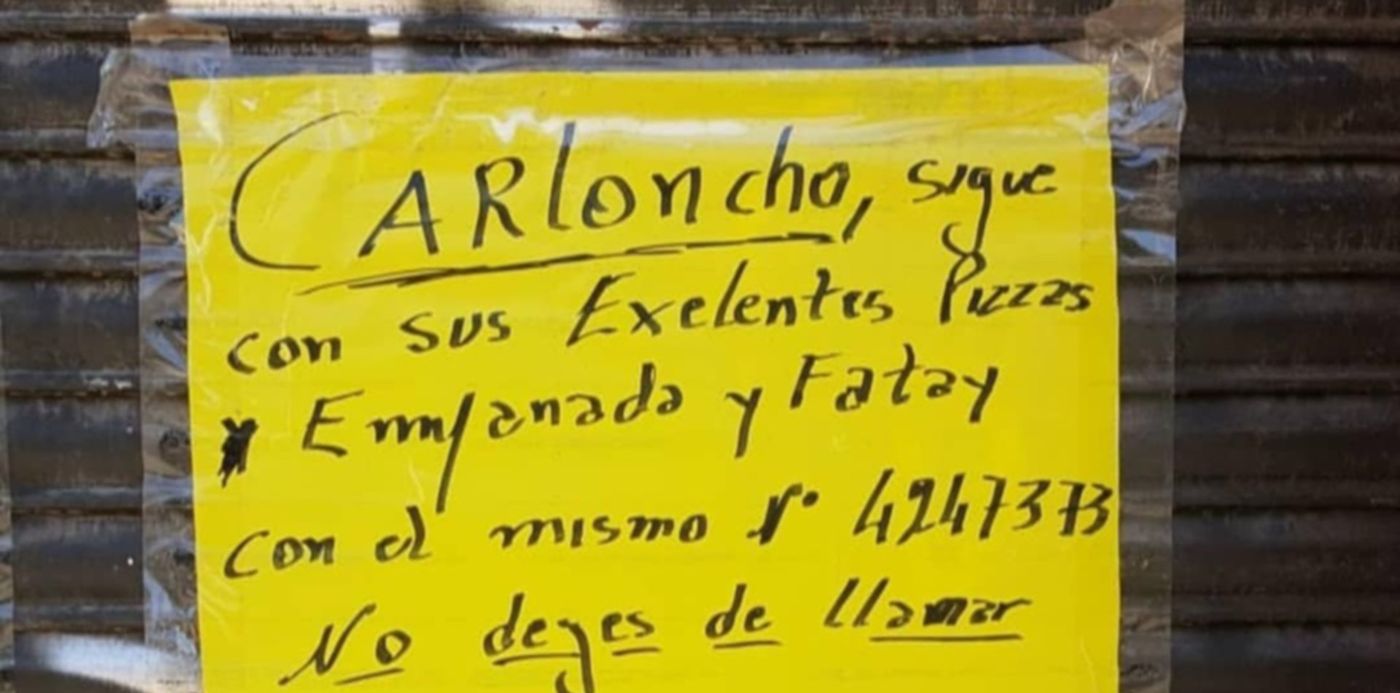 CARloncho, sigue
con sus Exelentes Pizzas
y Empanada y Fatay
con el mismo N° 4247373
No dejes de llamar